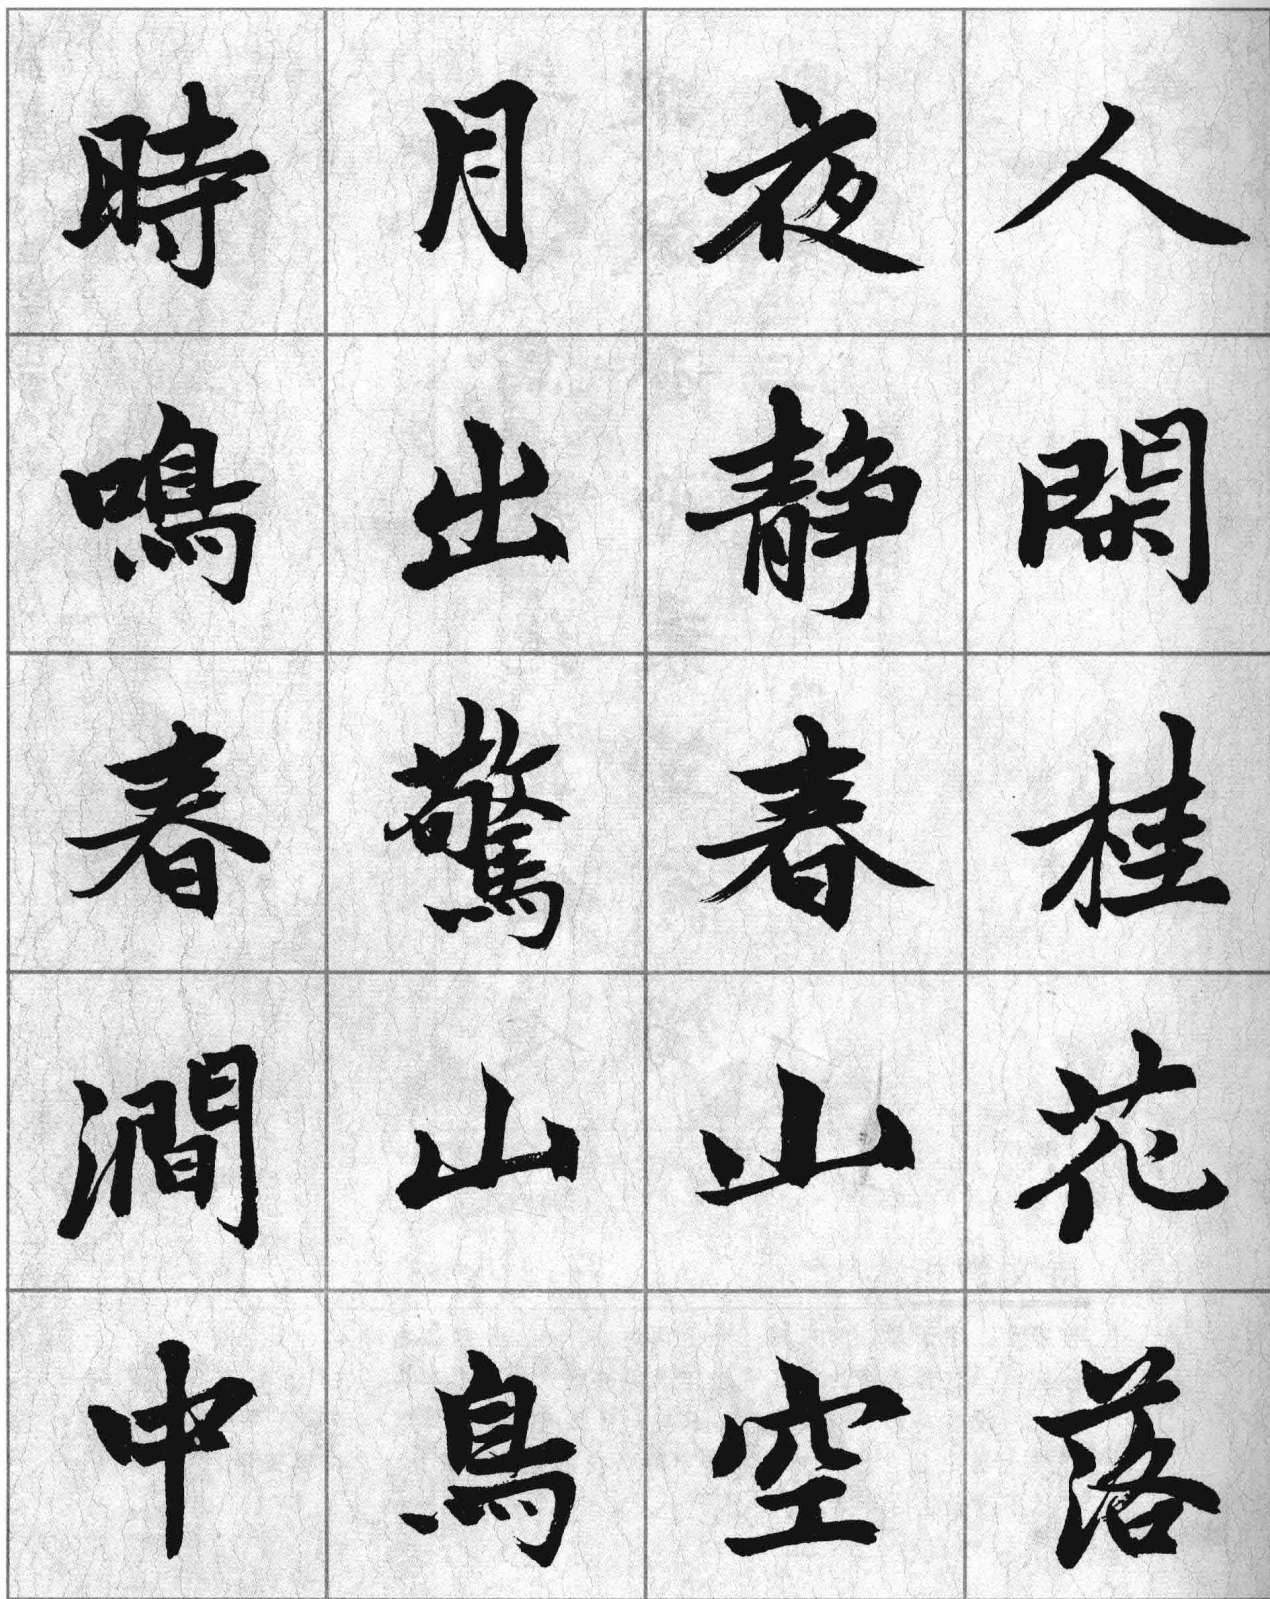 人閑桂花落
夜静春山空
月出驚山鳥
時鳴春澗中